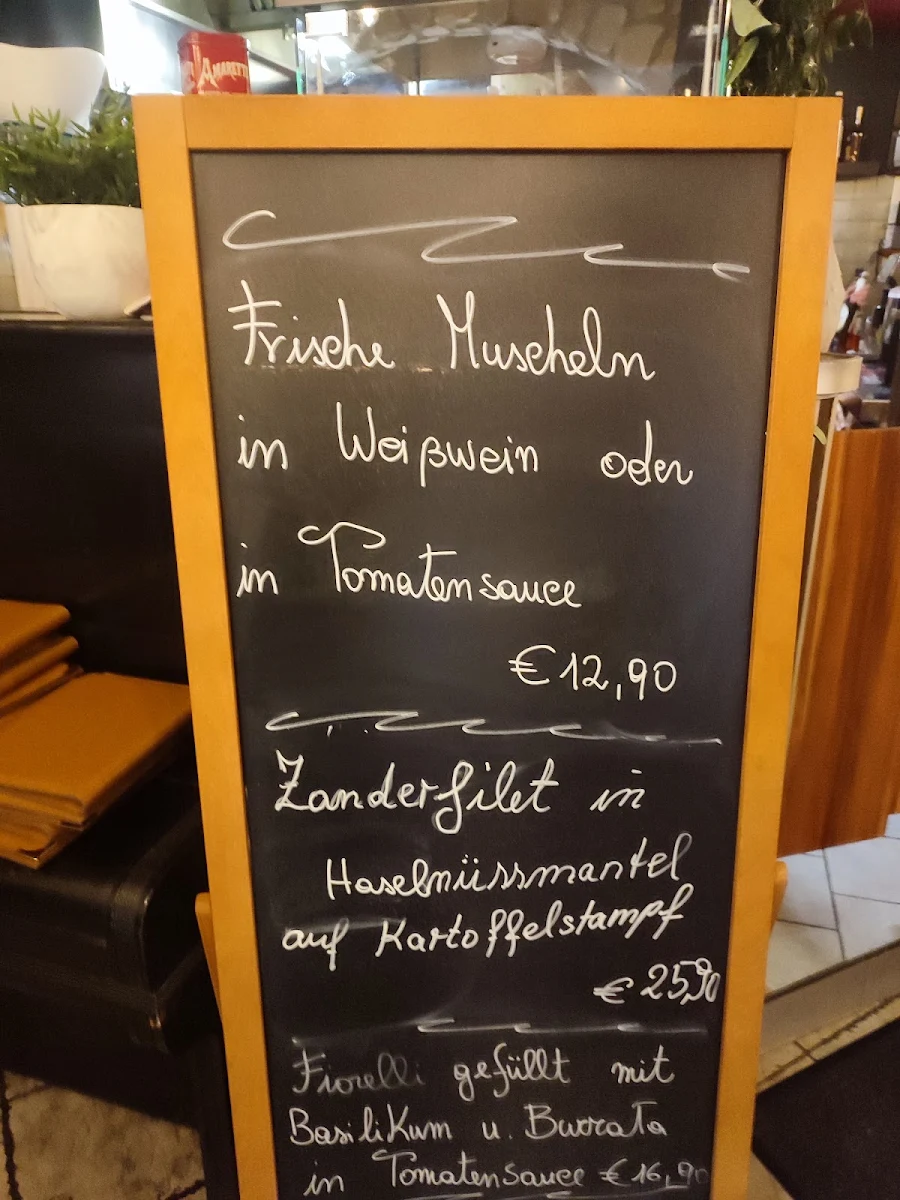 AMARETTI
Frische Muscheln
in Weißwein oder
in Tomatensauce
€ 12,90
Zanderfilet in
Haselnüssmantel
auf Kartoffelstampf
€ 25,90
Fiorelli gefüllt mit
Basilikum u. Burrata
in Tomatensauce € 16,90